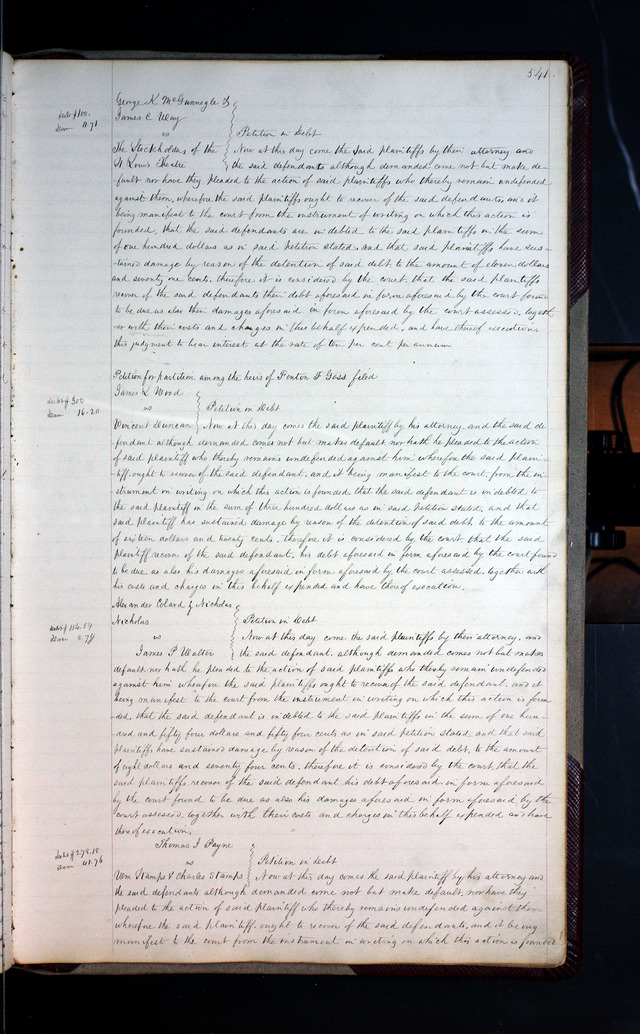 541.
George K McGunnegle &
debt $100.
James C Way
Dam 11.71
vs
Petition in Debt
The Stockholders of the Now at this day come the said plaintiffs by their attorney and
St Louis Theatre the said defendants although demanded come not but make de-
fault nor have they pleaded to the action of said plaintiffs who thereby remain undefended
against them, wherefore the said plaintiffs ought to recover of the said defendants, and it
being manifest to the court from the instrument of writing on which this action is
founded, that the said defendants are indebted to the said plaintiffs in the sum
of one hundred dollars as in said petition stated, and that said plaintiffs have sus-
-tained damage by reason of the detention of said debt to the amount of eleven dollars
and seventy one cents. therefore it is considered by the court that the said plaintiffs
recover of the said defendants their debt aforesaid in form aforesaid by the court found
to be due as also their damages aforesaid in form aforesaid by the court assessed, togeth-
er with their costs and charges in this behalf expended, and have thereof execution.
this judgment to bear interest at the rate of ten per cent per annum
Petition for partition among the heirs of F Goss filed
James L Wood
debt $300
vs Petition in Debt
Dam 16.20
Vincent Duncan Now at this day comes the said plaintiff by his attorney, and the said de-
fendant although demanded comes not but makes default, nor hath he pleaded to the action
of said plaintiff who thereby remains undefended against him wherefore the said plain-
-tiff, ought to recover of the said defendant, and it being manifest to the court, from the in-
strument on writing on which this action is founded that the said defendant is indebted to
the said plaintiff in the sum of three hundred dollars as in said Petition stated, and that
said plaintiff has sustained damage by reason of the detention of said debt to the amount
of sixteen dollars and twenty cents. therefore it is considered by the court that the said
plaintiff recover of the said defendant, his debt aforesaid in form aforesaid by the court found
to be due, as also his damages aforesaid in form aforesaid by the court assessed, together with
his costs and charges in this behalf expended and have thereof execution.
Alexander & Nicholas
Nicholas Petition in Debt
debt $154.54
Dam 8.74
vs Now at this day come the said plaintiffs by their attorney, and
James P Walter the said defendant, although demanded comes not but makes
default, nor hath he pleaded to the action of said plaintiffs who thereby remain undefended
against him wherefore the said plaintiffs ought to recover of the said defendant, and it
being manifest to the court from the instrument in writing on which this action is foun-
-ded, that the said defendant is indebted to the said plaintiffs in the sum of one hun-
dred and fifty four dollars and fifty four cents as in said petition stated and that said
plaintiffs have sustained damage by reason of the detention of said debt, to the amount
of eight dollars and seventy four cents, therefore it is considered by the court, that the
said plaintiffs recover of the said defendant his debt aforesaid in form aforesaid
by the court found to be due as also his damages aforesaid in form aforesaid by the
court assessed, together with their costs and charges in this behalf expended and have
thereof execution.
Thomas J Payne
debt $279.18
vs Petition in debt
Dam 41.76
Wm Stamps & Charles Stamps Now at this day comes the said plaintiff by his attorney and
the said defendants although demanded come not but make default, nor have they
pleaded to the action of said plaintiff who thereby remains undefended against them
wherefore the said plaintiff, ought to recover of the said defendants, and it being
manifest to the court from the instrument in writing on which this action is founded